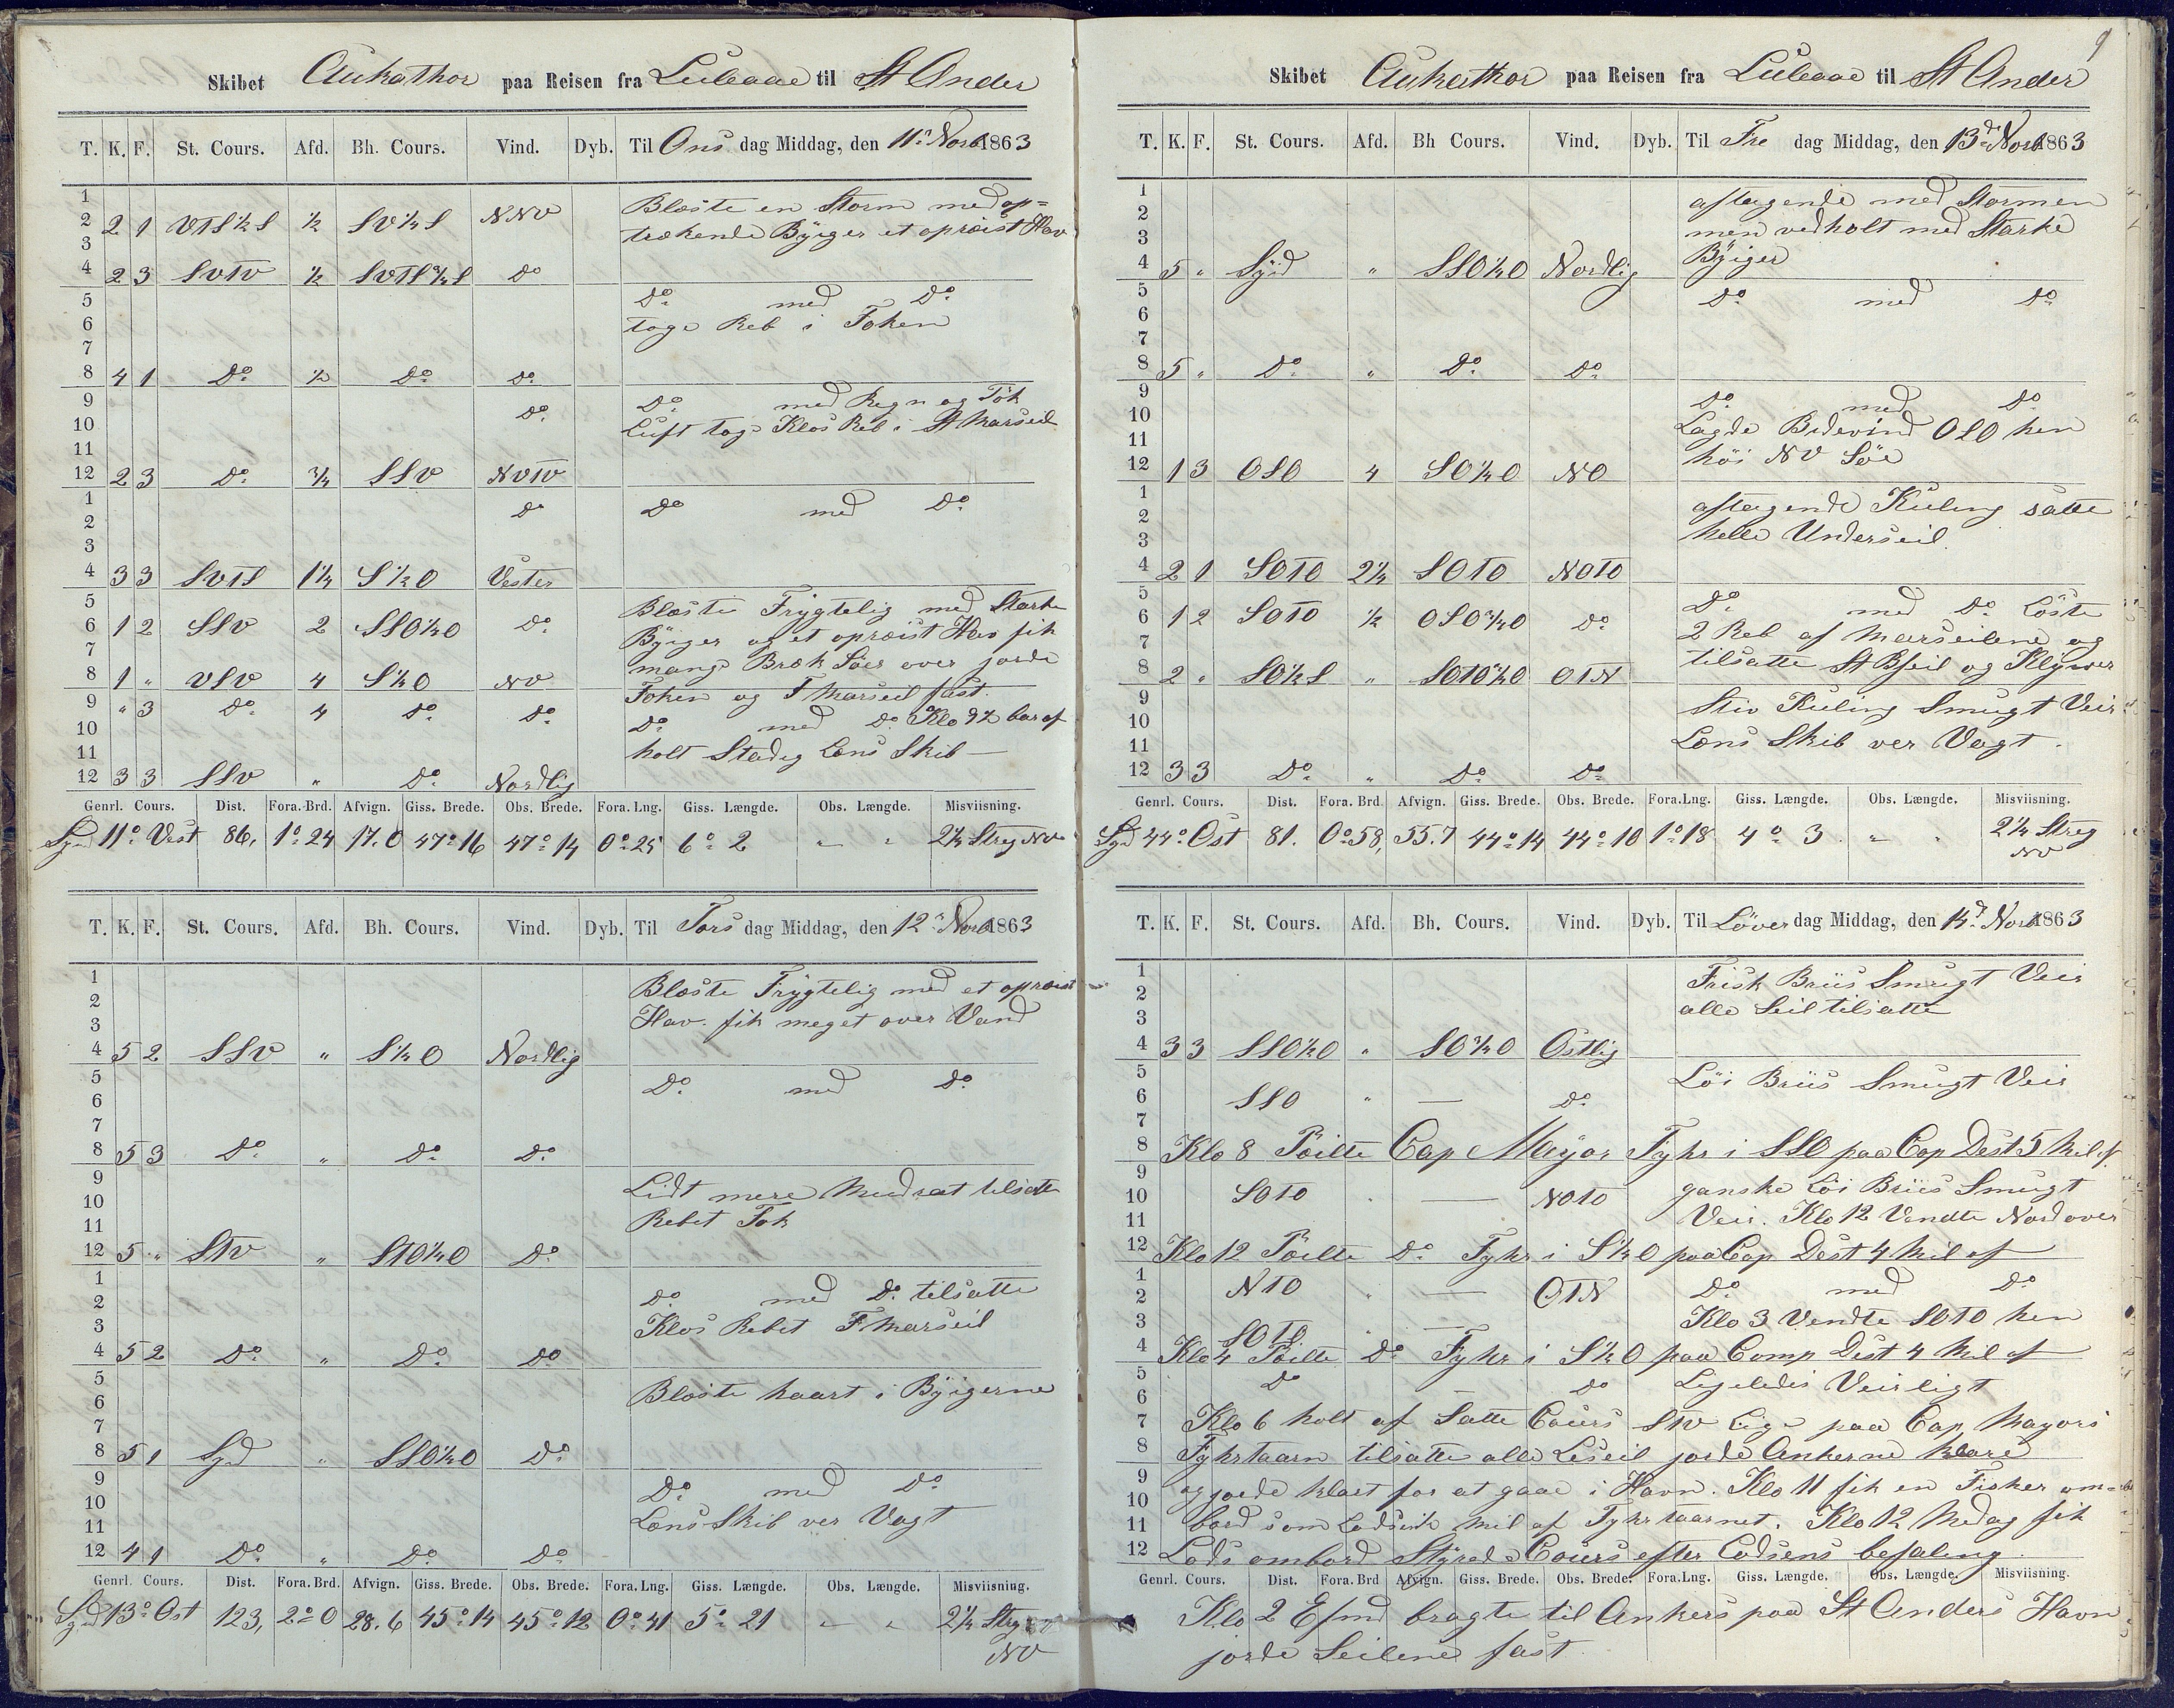 Skibet Aukathor paa Reisen fra Luleaae til St Ander
T. K. F. St. Cours. Afd. Bh. Cours. Vind. Dyb. Til Ons dag Middag, den 11te Novb 1863
1 Blæste en Storm med op=
2 2 1 VTS½S ½ SV½S NNV trækende Byiger et opræist Hav
3
4 2 3 SVTV ½ SVTS¾S Do
5 Do med Do
6 toge Reb i Foken
7
8 4 1 Do ½ Do Do
9 Do Do med Regn og Tök
10 Luft toge Klos Reb i St Marseil
11
12 2 3 Do ¾ SSV NVTV
1 Do Do med Do
2
3
4 3 3 SVTS 1¼ S½O Vester
5 Blæste Frygtelig med Starke
6 1 2 SSV 2 SSO¼O Do Byiger og et opræist Hav fik
7 mange Bræk Söer over jorde
8 1 " VSV 4 S¼O NV Foken og F Marseil fast
9 " 3 Do 4 Do Do
10 Do med Do Klo 9½ bar af
11 holt Stadig Læns Skib
12 3 3 SSV " Do Nordlig
Genrl. Cours. Dist. Fora. Brd. Afvign. Giss. Brede. Obs. Brede. Fora. Lng. Giss. Længde. Obs. Længde. Misviisning.
Syd 11° Vest 86, 1° 24 17.0 47° 16 47° 14 0° 25 6° 2 " " 2¼ Streg NV
T. K. F. St. Cours. Afd. Bh. Cours. Vind. Dyb. Til Tors dag Middag, den 12te Novb 1863
1 Blæste Frygtelig med et opræist
2 Hav. fik meget over Vand
3
4 5 2 SSV " S¼O Nordlig
5 Do med Do
6
7
8 5 3 Do " Do Do
9 Lidt mere Mudrat tilsatte
10 Rebet Fok
11
12 5 " STV " STO¼O Do
1 Do med Do tilsatte
2 Klos Rebet F Marseil
3
4 5 2 Do " Do Do
5 Blæste haart i Byigerne
6
7
8 5 1 Syd " SSO¼O Do
9 Do med Do
10 Læns Skib ver Vagt
11
12 4 1 Do " Do Do
Genrl. Cours. Dist. Fora. Brd. Afvign. Giss. Brede. Obs. Brede. Fora. Lng. Giss. Længde. Obs. Længde. Misviisning.
Syd 13° Ost 123, 2° 0 28.6 45° 14 45° 12 0° 41 5° 21 " " 2¼ Streg
NV
9
Skibet Aukathor paa Reisen fra Luleaae til St Ander
T. K. F. St. Cours. Afd. Bh Cours. Vind. Dyb. Til Fre dag Middag, den 13de Novb 1863
1 aftagende med Stormen
2 men vedholt med Starke
3 Byiger
4 5 " Syd " SSO¼O Nordlig
5 Do med Do
6
7
8 5 " Do " Do Do
9 Do med Do
10 Lagde Bidevind OSO hen
11 höi NV Söe
12 1 3 OSO 4 SO¼O NO
1 aftagende Kuling satte
2 helle Underseil
3
4 2 1 SOTO 2¼ SOTO NOTO
5 Do med Do Löste
6 1 2 SOTO ½ OSO¾O Do 2 Reb af Marseilene og
7 tilsatte St Bseil og Klywer
8 2 " SO½S " SOTO¾O OTN
9 Stiv Kuling Smugt Veir
10
11 Læns Skib ver Vagt.
12 3 3 Do " Do Do
Genrl. Cours. Dist. Fora. Brd Afvign. Giss. Brede. Obs. Brede. Fora. Lng. Giss. Længde. Obs. Længde. Misviisning.
Syd 44° Ost 81. 0° 58, 55.7 44° 14 44° 10 1° 18 4° 3 " " 2¼ Streg
NV
T. K. F. St. Cours. Afd. Bh. Cours. Vind. Dyb. Til Löver dag Middag, den 14d Novb 1863
1 Frisk Briis Smugt Veir
2 alle Seil tilsatte
3
4 3 3 SSO½O " SO¾O Ostlig
5 Löi Briis Smugt Veir
6 SSO " — Do
7
8 Klo 8 Pöilte Cap Mayor Fyhr i SSO paa Cop Dest 5 Mil af
9
10 SOTO " — NOTO ganske Löi Briis Smugt
11 Veir. Klo 12 Vendte Nordover
12 Klo 12 Pöilte Do Fyhr i S½O paa Cop Dest 4 Mil af
1 NTO " — OTN Do med Do
2
3 SOTO " — Klo 3 Vendte SOTO hen
4 Klo 4 Pöilte Do Fyhr i S½O paa Comp Dist 4 Mil af
5 Do — Do Ligeledis Veirligt
6
7 Klo 6 holt af Satte Cours STV lige paa Cap Mayors
8 Fyhrtaarn tilsatte alle Leseil jorde Ankerne klare
9 og jorde klaet for at gaae i Havn. Klo 11 fik en Fisker om=
10 bord som Lods Mil af Fyhrtaarnet. Klo 12 Medag fik
11
12 Lods ombord Styrede Cours efter Lodsens befaling
Genrl. Cours. Dist. Fora. Brd Afvign. Giss. Brede. Obs. Brede. Fora. Lng. Giss. Længde. Obs. Længde. Misviisning.
Klo 2 Efmd bragte til Ankers paa St Anders Havn
jorde Seilene fast